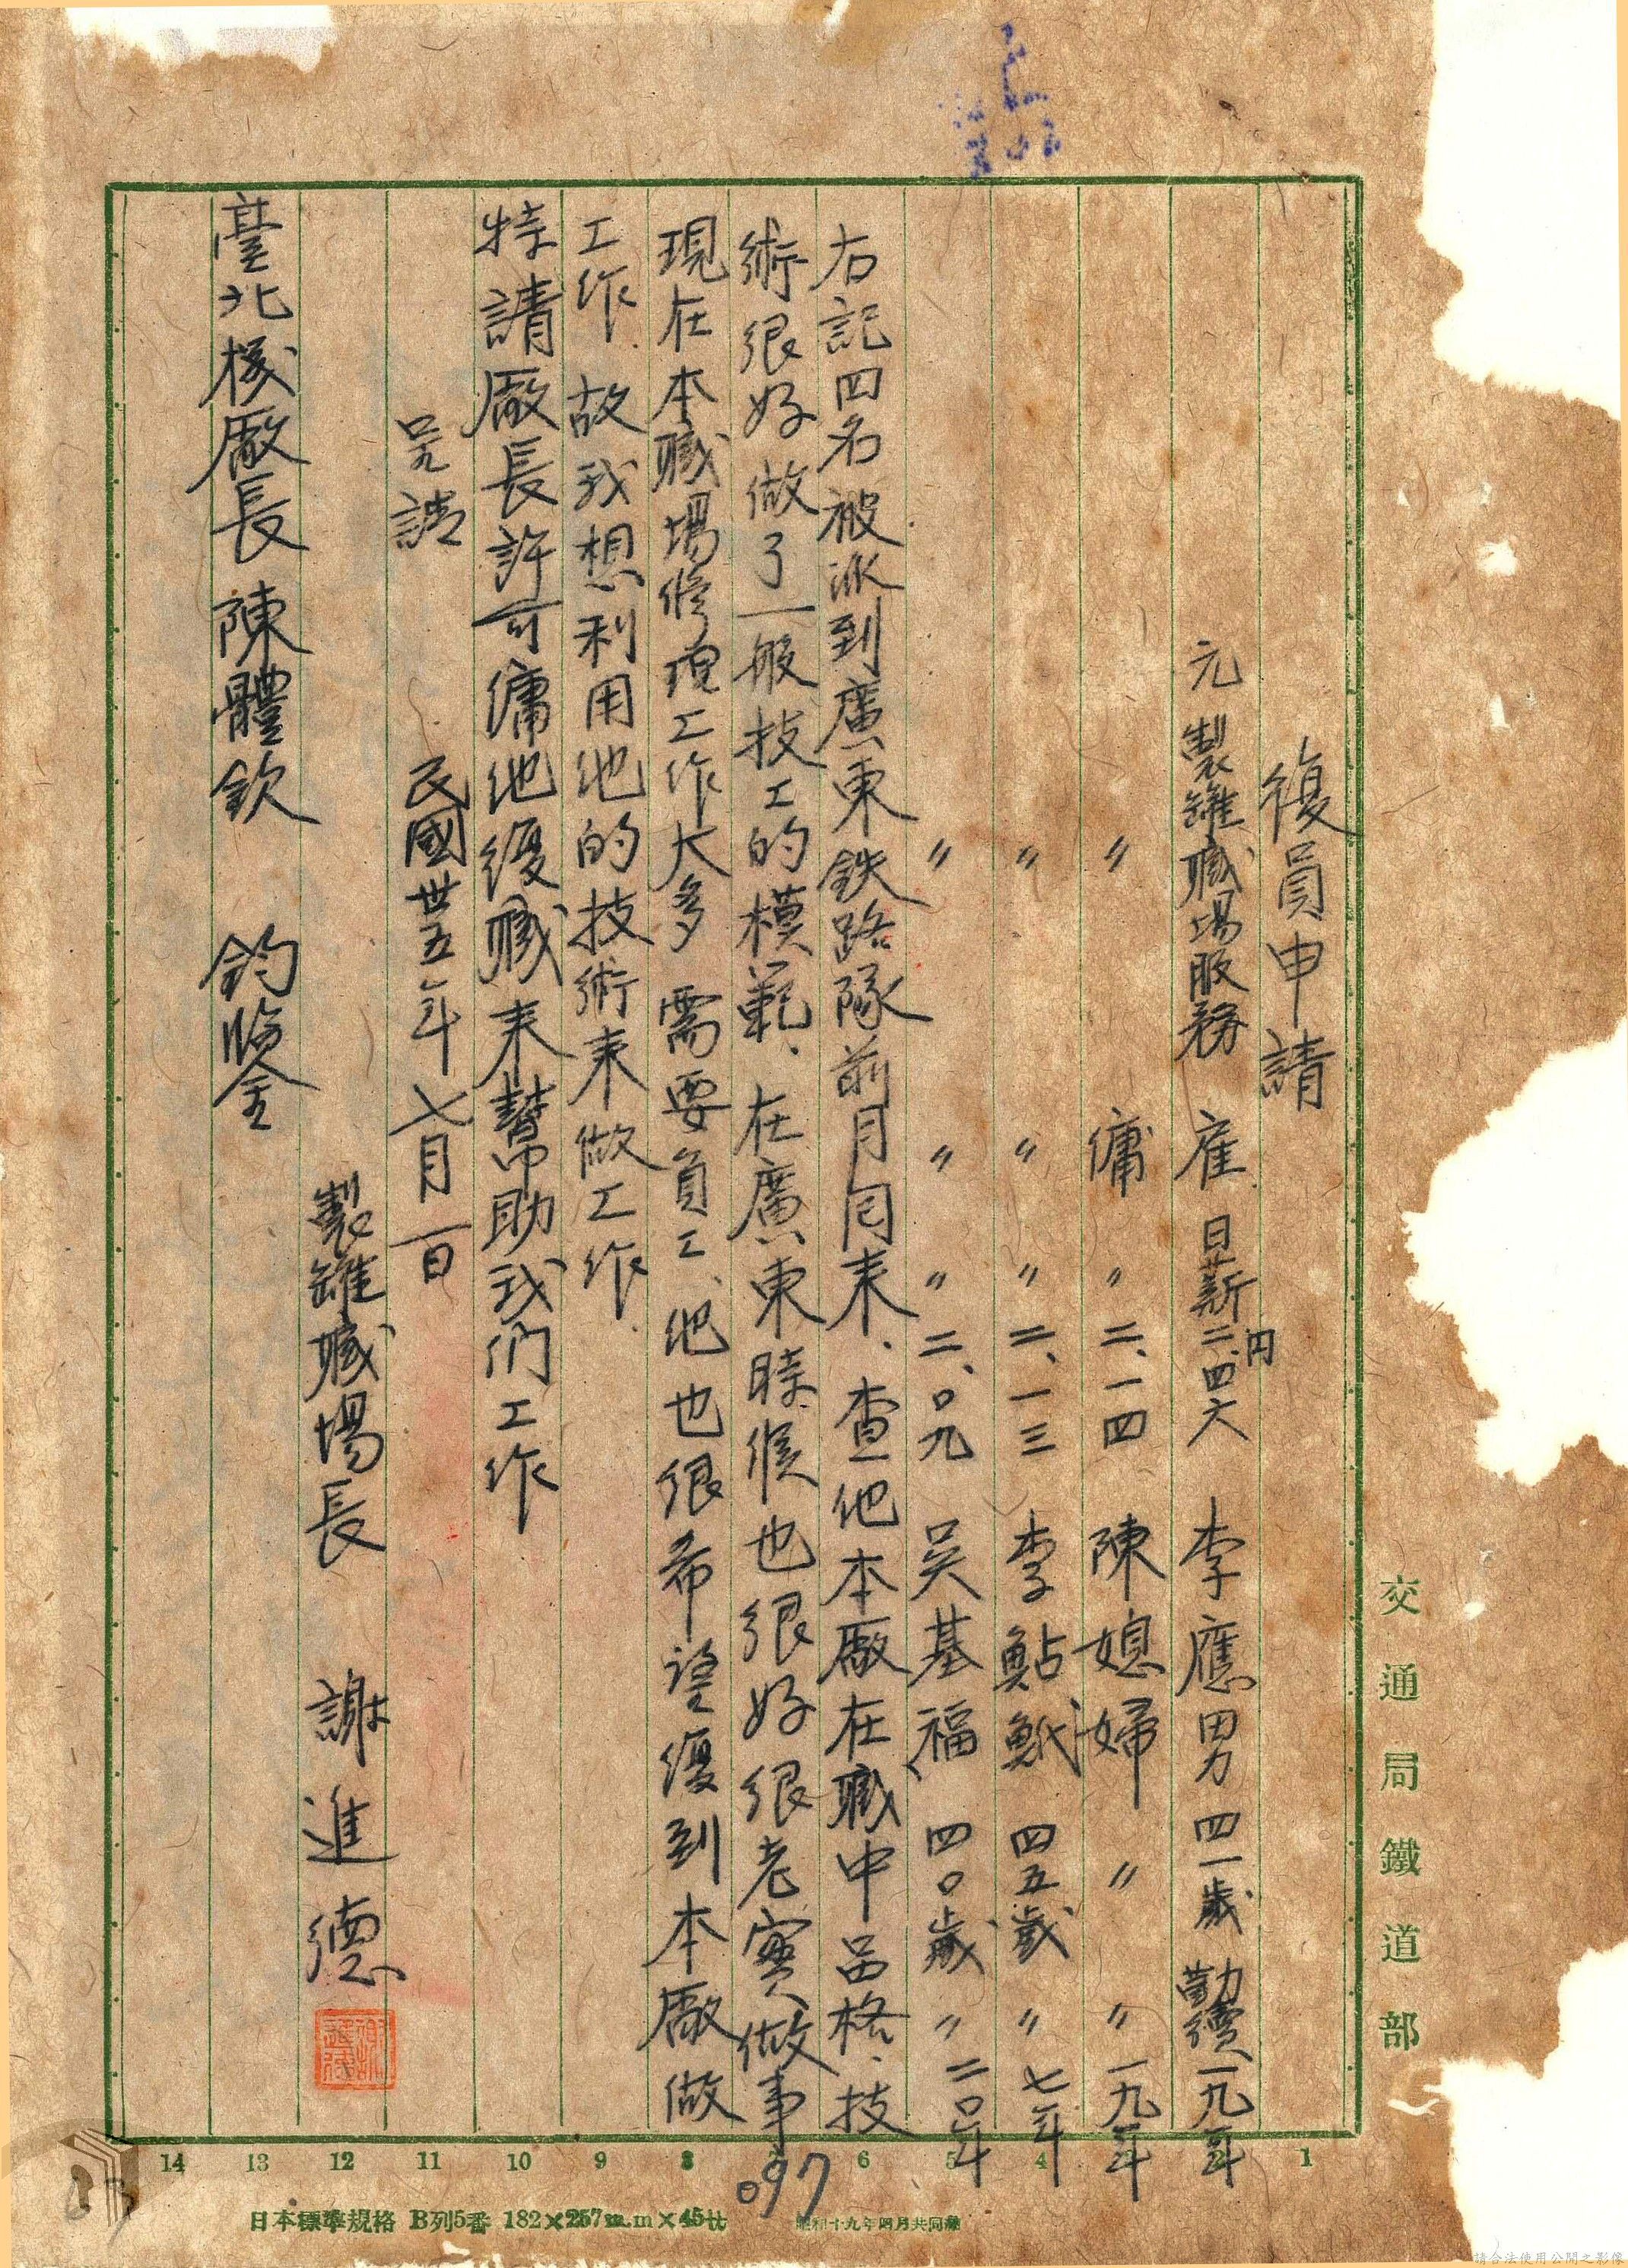 復員申請
元製罐職場服務 雇 日薪二.四六円 李應男 四一歲 勤續一九年
〃 傭 〃 二、一四 陳媳婦 〃 〃 一九年
〃 〃 〃 二、一三 李鮎魢 四五歲 〃 七年
〃 〃 〃 二、〇九 吳基福 四〇歲 〃 二〇年
右記四名被派到廣東鉄路隊前月囘来、查他本廠在職中品格、技
術很好做了一般技工的模範、在廣東時候也很好很老實做事
現在本職場修理工作大多需要員工、他也很希望復到本廠做
工作故我想利用他的技術来做工作
特請廠長許可傭他復職来幫助我们工作
呈請
民國卅五年七月一日
製罐職場長 謝進德
臺北機廠長陳體欽 鈞鑒
交通局鐵道部
1 4 5 6 8 9 10 11 12 13 14
097
日本標準規格 B列5番 182×257m.m×45kg
昭和十九年四月共同納
請合法使用公開之影像